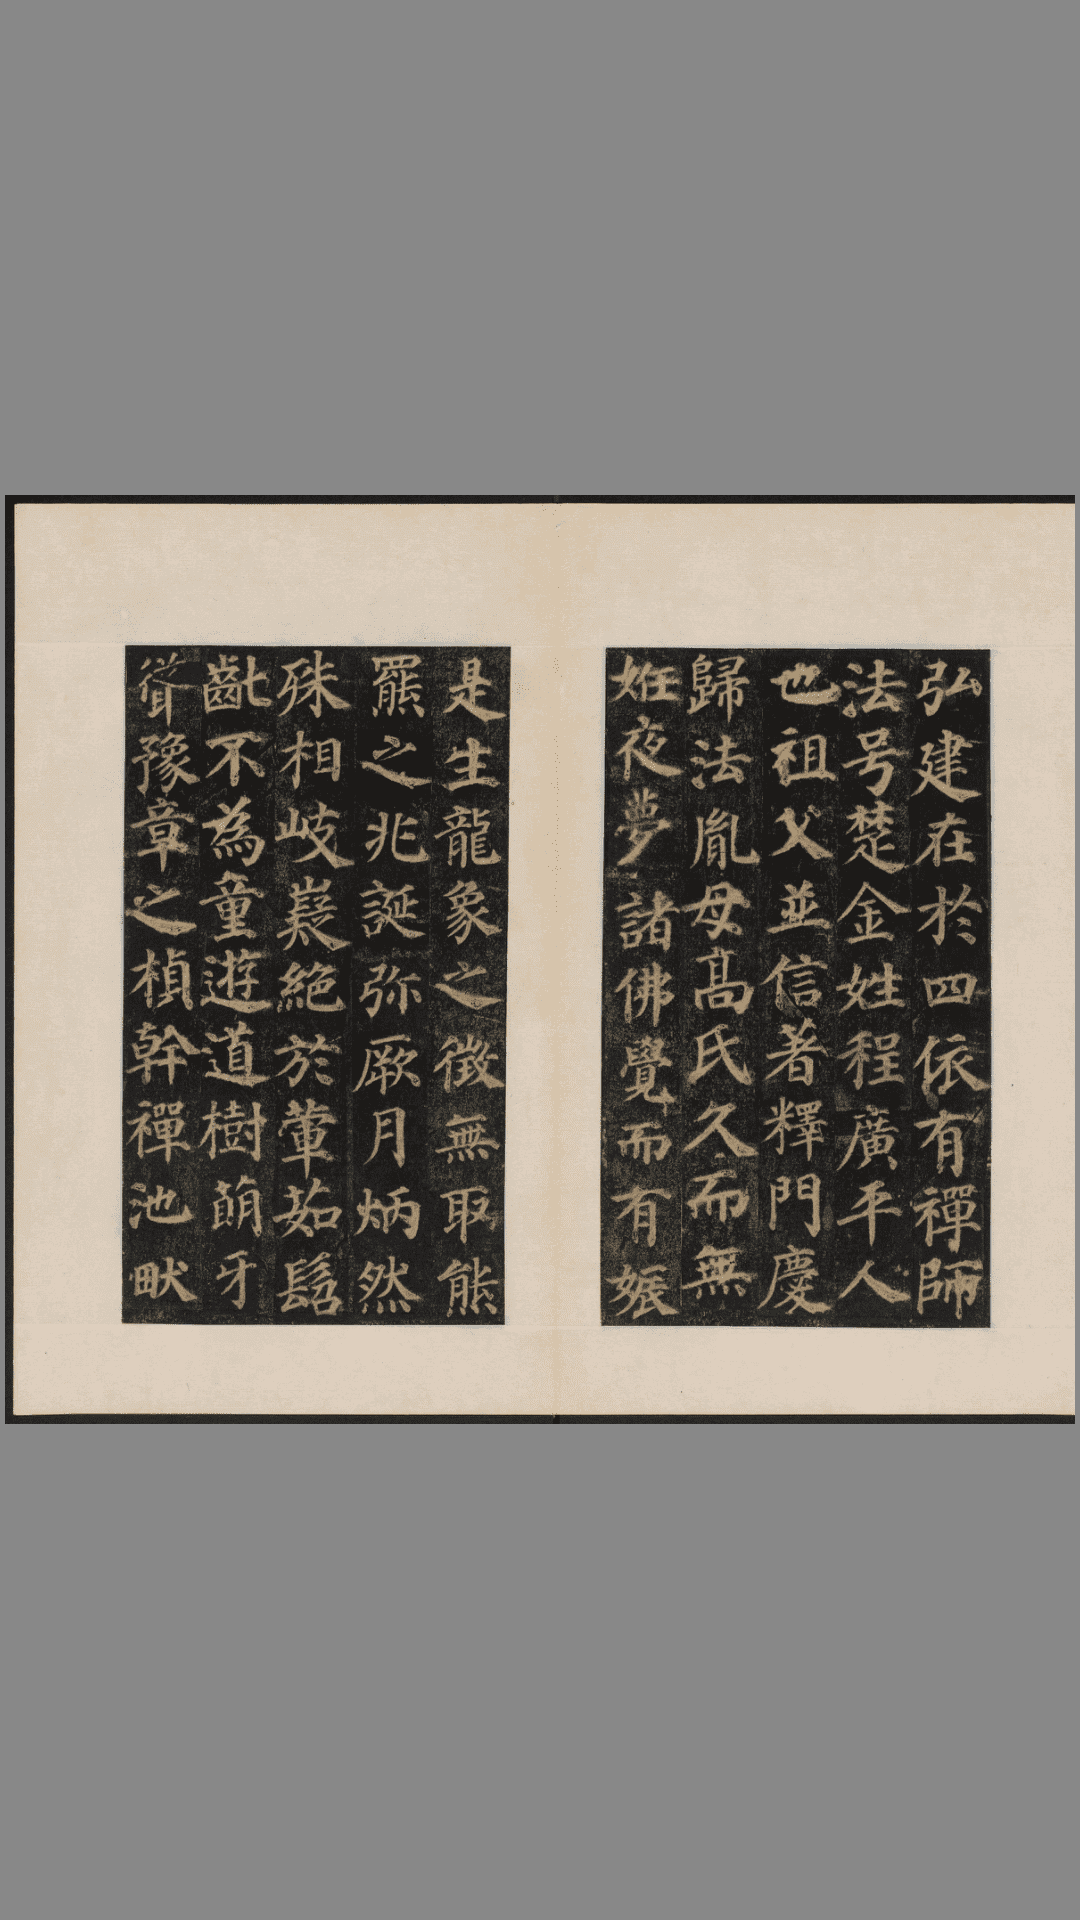 弘建在於四依有禪師
法号楚金姓程廣平人
也祖父並信著釋門慶
歸法胤母高氏久而無
姙夜夢諸佛覺而有娠
是生龍象之徵無取熊
羆之兆誕弥厥月炳然
殊相岐嶷絕於葷茹髫
齔不為童遊道樹萌牙
聳豫章之楨幹禪池畎